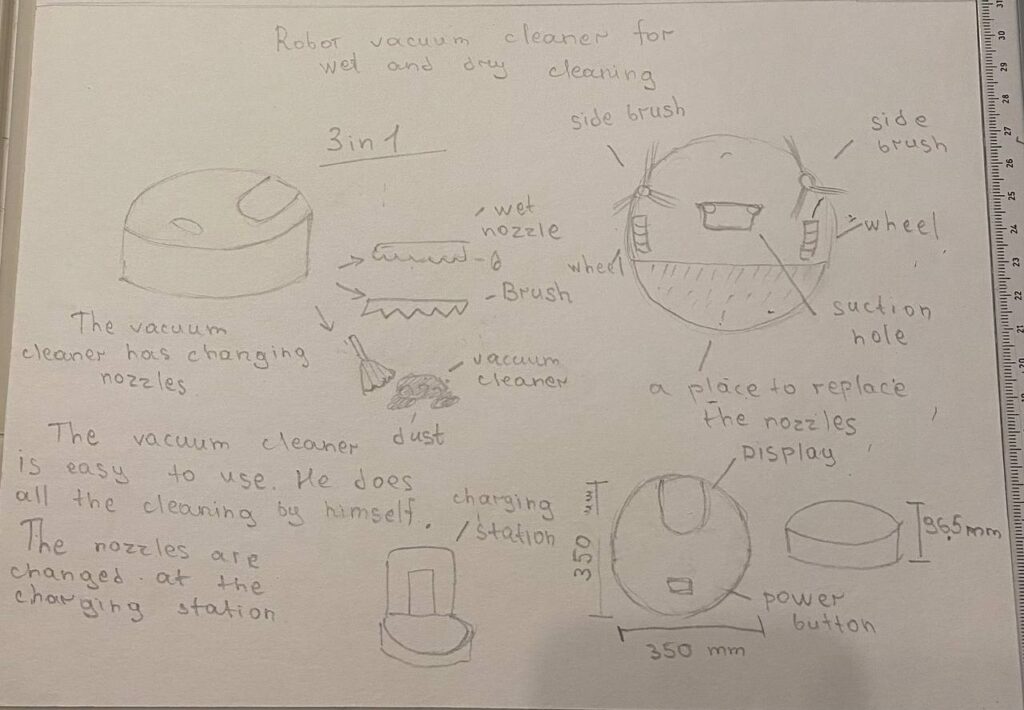 Robot vacuum cleaner for
wet and dry cleaning
3 in 1
side brush
side
brush
wet
nozzle
Brush
wheel
wheel
suction
hole
a place to replace
the nozzles
The vacuum
cleaner has changing
nozzles
vacuum
cleaner
dust
The vacuum cleaner
is easy to use. He does
all the cleaning by himself.
The nozzles are
changed at the
charging station
charging
station
Display
350 mm
96,5 mm
power
button
350 mm
31
30
29
28
27
26
25
24
23
22
21
20